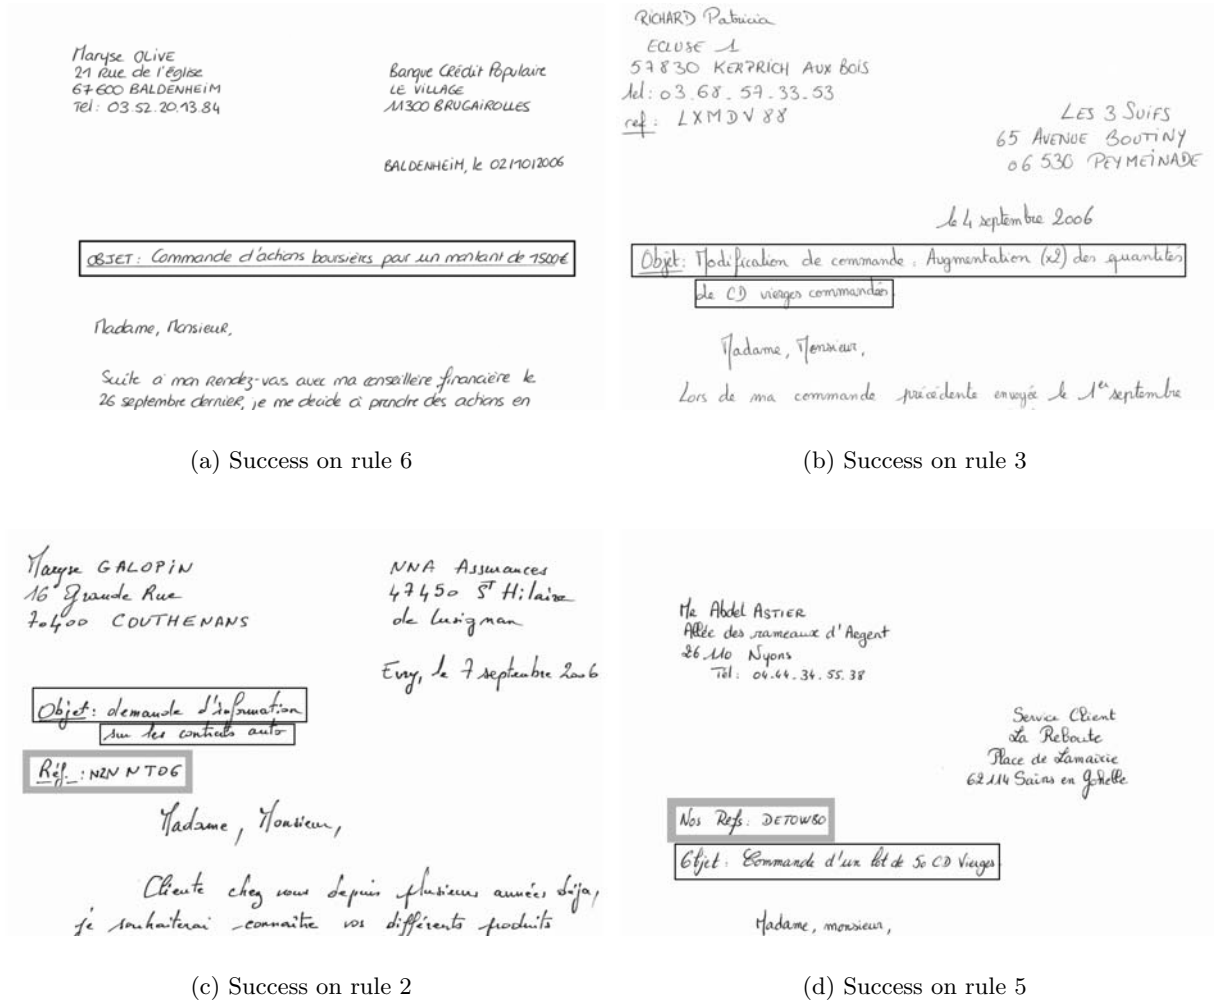 Maryse OLIVE
21 Rue de l'église
67600 BALDENHEIM
Tel : 03.52.20.13.84
Banque Crédit Populaire
LE VILLAGE
11300 BRUGAIROLLES
BALDENHEIM, le 02/10/2006
OBJET : Commande d'actions boursières pour un montant de 1500€
Madame, Monsieur,
Suite à mon rendez-vous avec ma conseillère financière le
26 septembre dernier, je me decide à prendre des actions en
(a) Success on rule 6
RICHARD Patricia
ECLUSE 1
57830 KERPRICH AUX BOIS
tel : 03.68.57.33.53
ref : LXMDV88
LES 3 SUIFS
65 AVENUE BOUTINY
06 530 PEYMEINADE
le 4 septembre 2006
Objet : Modification de commande : Augmentation (x2) des quantités
de CD vierges commandés.
Madame, Monsieur,
Lors de ma commande précédente envoyée le 1er septembre
(b) Success on rule 3
Maryse GALOPIN
16 Grande Rue
70400 COUTHENANS
NNA Assurances
47450 ST Hilaire
de Lusignan
Evry, le 7 septembre 2006
Objet : demande d'information
sur les contrats auto
Réf. : NZNNTOG
Madame, Monsieur,
Cliente chez vous depuis plusieurs années déja,
je souhaiterai connaître vos différents produits
(c) Success on rule 2
Mr Abdel ASTIER
Allée des rameaux d'Argent
26110 Nyons
Tél : 04.44.34.55.38
Service Client
La Reboute
Place de Lamairie
62114 Sains en Gohelle
Nos Refs : DETOW80
Objet : Commande d'un lot de 50 CD Vierges
Madame, monsieur,
(d) Success on rule 5